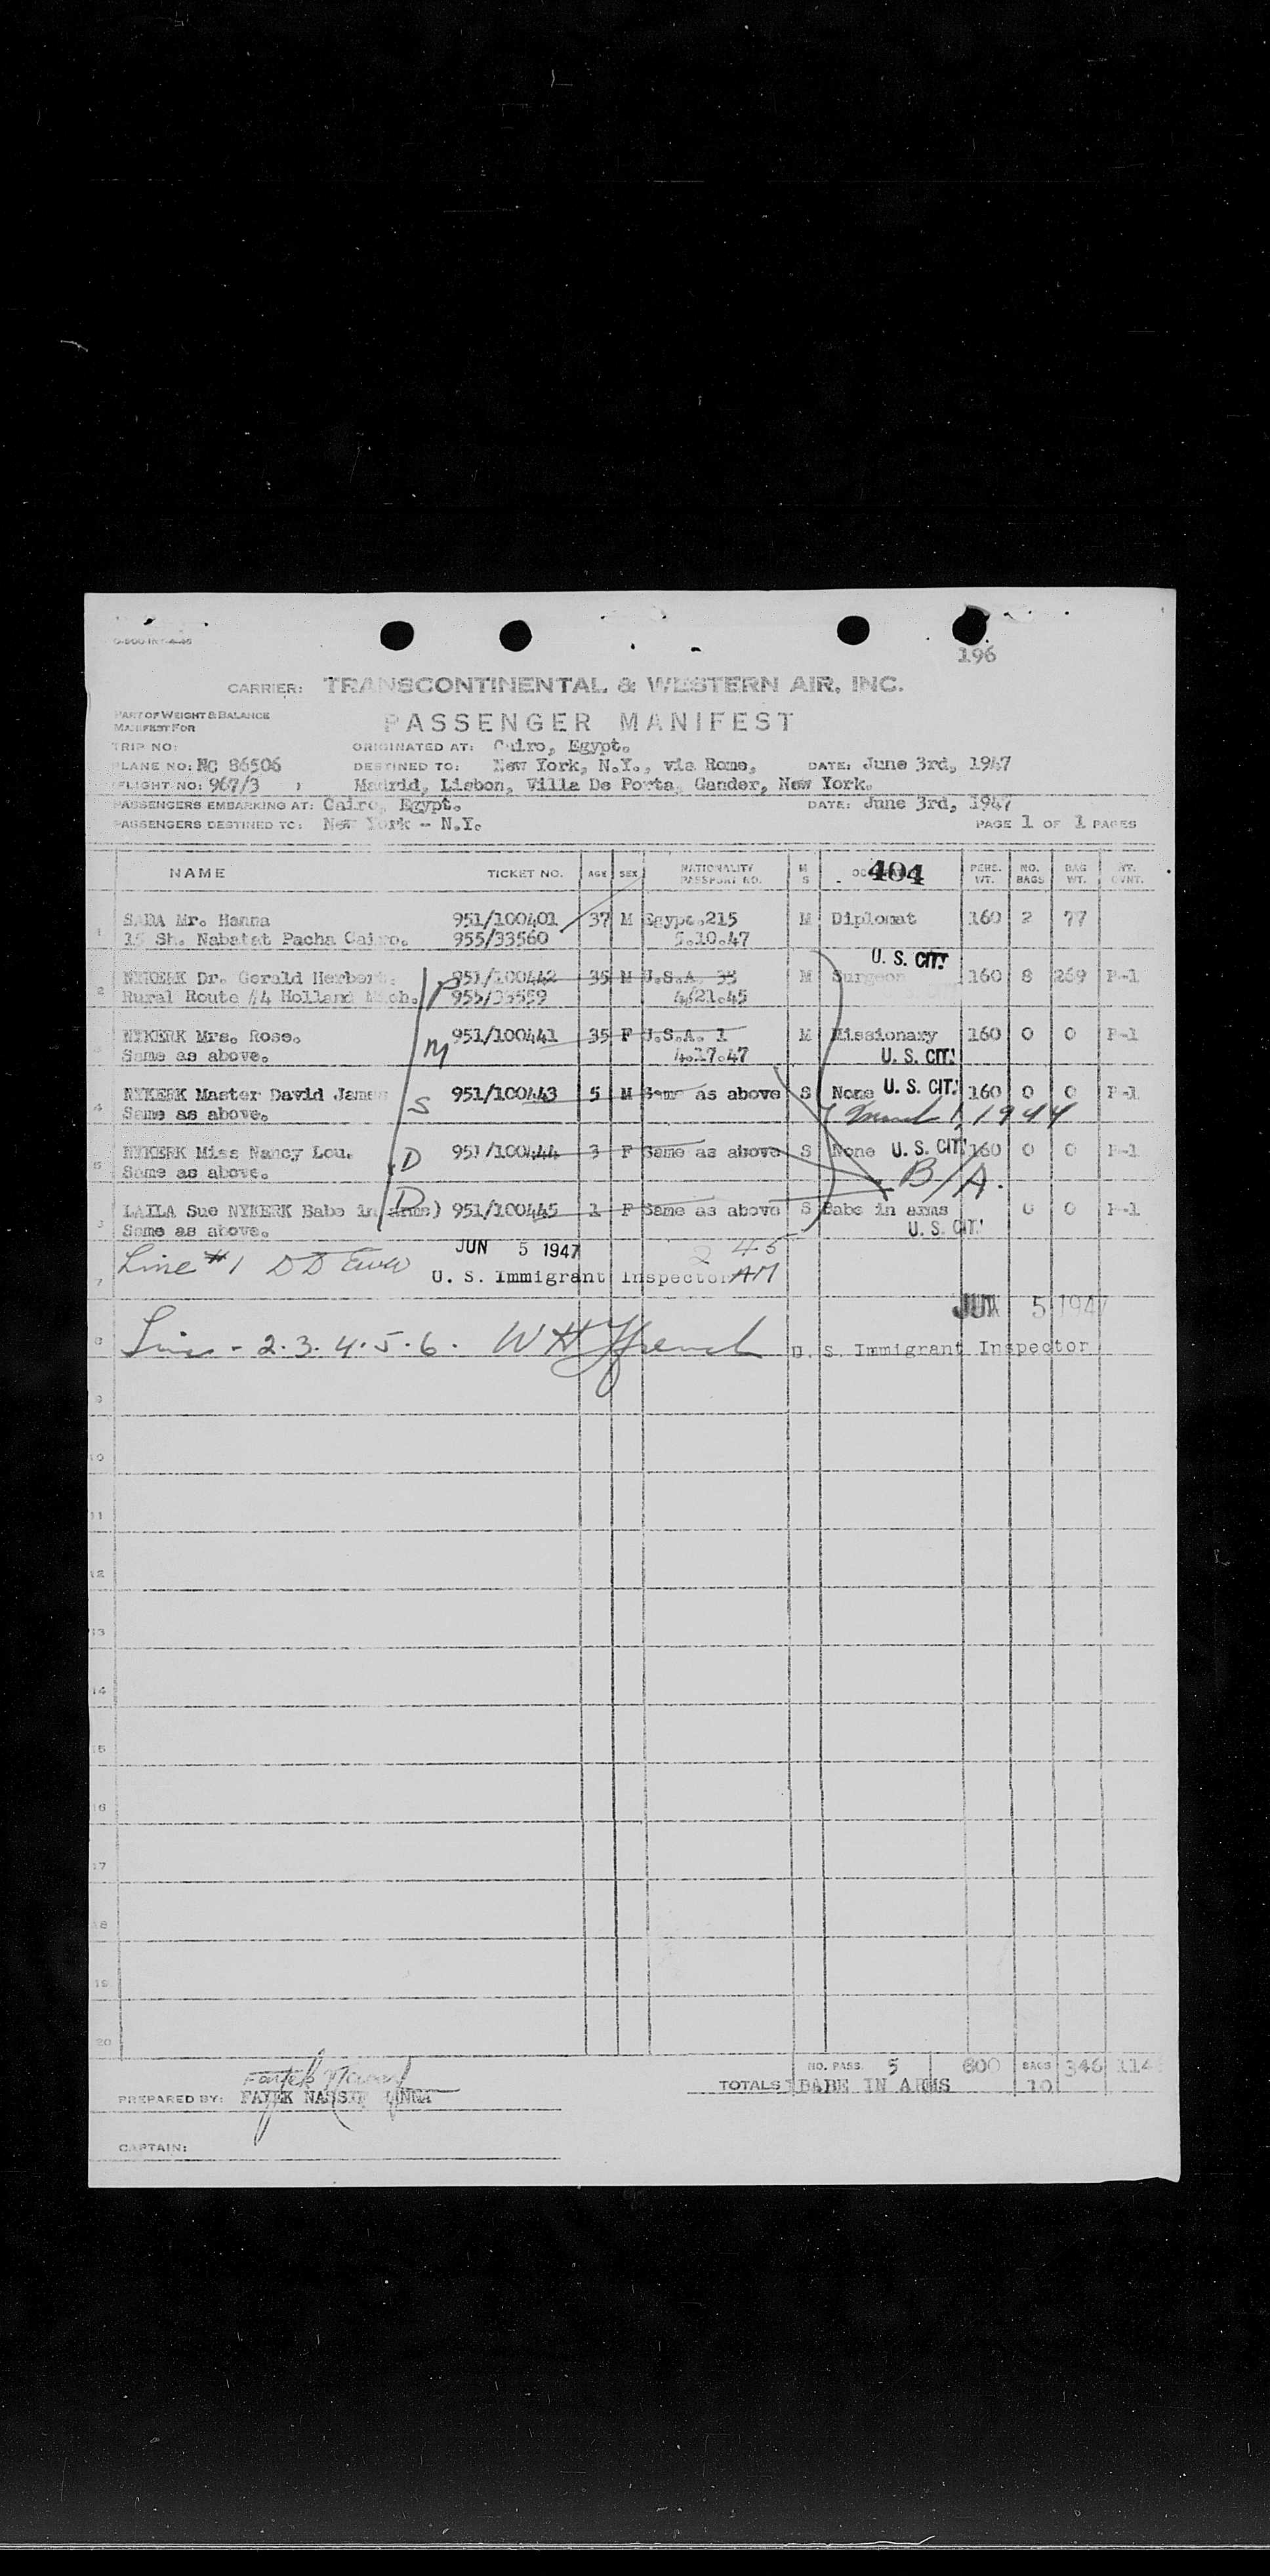 196
CARRIER: TRANSCONTINENTAL & WESTERN AIR, INC.
PART OF WEIGHT & BALANCE
MANIFEST FOR
PASSENGER MANIFEST
TRIP NO: ORIGINATED AT: Cairo, Egypt.
PLANE NO: NC 86506 DESTINED TO: New York, N.Y., via Rome, DATE: June 3rd, 1947
FLIGHT NO: 967/3 Madrid, Lisbon, Villa De Porta, Gander, New York.
PASSENGERS EMBARKING AT: Cairo, Egypt. DATE: June 3rd, 1947
PASSENGERS DESTINED TO: New York - N.Y. PAGE 1 OF 1 PAGES
NAME TICKET NO. AGE SEX NATIONALITY PASSPORT NO. M S 404 PERS. WT. NO. BAGS BAG WT.
1 SADA Mr. Hanna 951/100401 37 M Egypt.215 M Diplomat 160 2 77
15 Sh. Nabatat Pacha Cairo. 955/33560 5.10.47
U. S. CIT.
2 NYKERK Dr. Gerald Herbert. 951/100442 35 M U.S.A. 33 M Surgeon 160 8 269 P-1
Rural Route #4 Holland Mich. P 955/33559 4/21.45
3 NYKERK Mrs. Rose. 951/100441 35 F U.S.A. 1 M Missionary 160 0 0 P-1
Same as above. M 4.17.47 U. S. CIT.
4 NYKERK Master David James 951/100443 5 M Same as above S None U. S. CIT. 160 0 0 P-1
Same as above. S 1, 1944
5 NYKERK Miss Nancy Lou. 951/100444 3 F Same as above S None U. S. CIT. 160 0 0 P-1
Same as above. D B/A.
LAILA Sue NYKERK Babe in arms) D 951/100445 1 F Same as above S Babe in arms 0 0 P-1
Same as above. U. S. CIT.
Line #1 JUN 5 1947 2 45
7 U. S. Immigrant Inspector AM
JUN 5 1947
8 2.3.4.5.6. W H Ffrench U. S. Immigrant Inspector
9
10
11
12
13
14
15
16
17
18
19
20
NO. PASS. 5 800 BAGS 346 114
TOTALS BABE IN ARMS 10
PREPARED BY: FAYEK NASSIF
CAPTAIN: